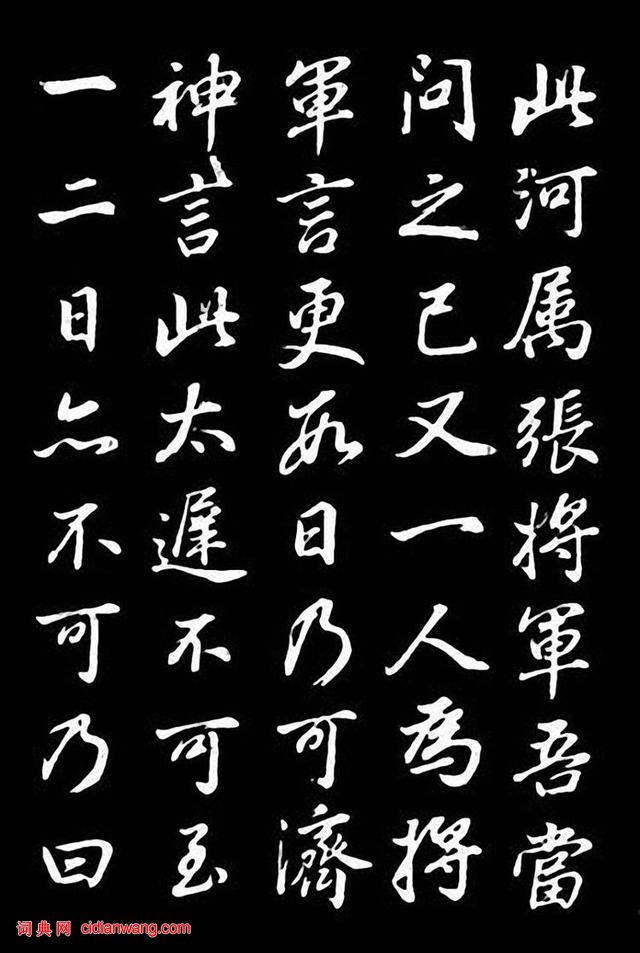 此河属張將軍吾當
問之已又一人為將
軍言更數日乃可濟
神言此太遲不可至
一二日亦不可乃曰
词典网 cidianwang.com